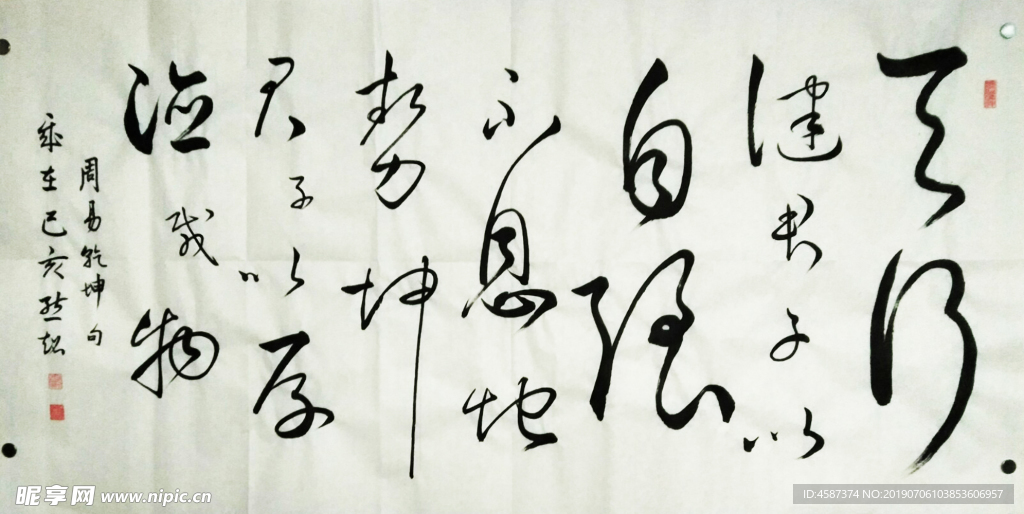 天行
健君子以
自强
不息地
势坤
君子以厚
德载物
周易乾坤句
岁在己亥
昵享网 www.nipic.cn
ID:4587374 NO:20190706103853606957